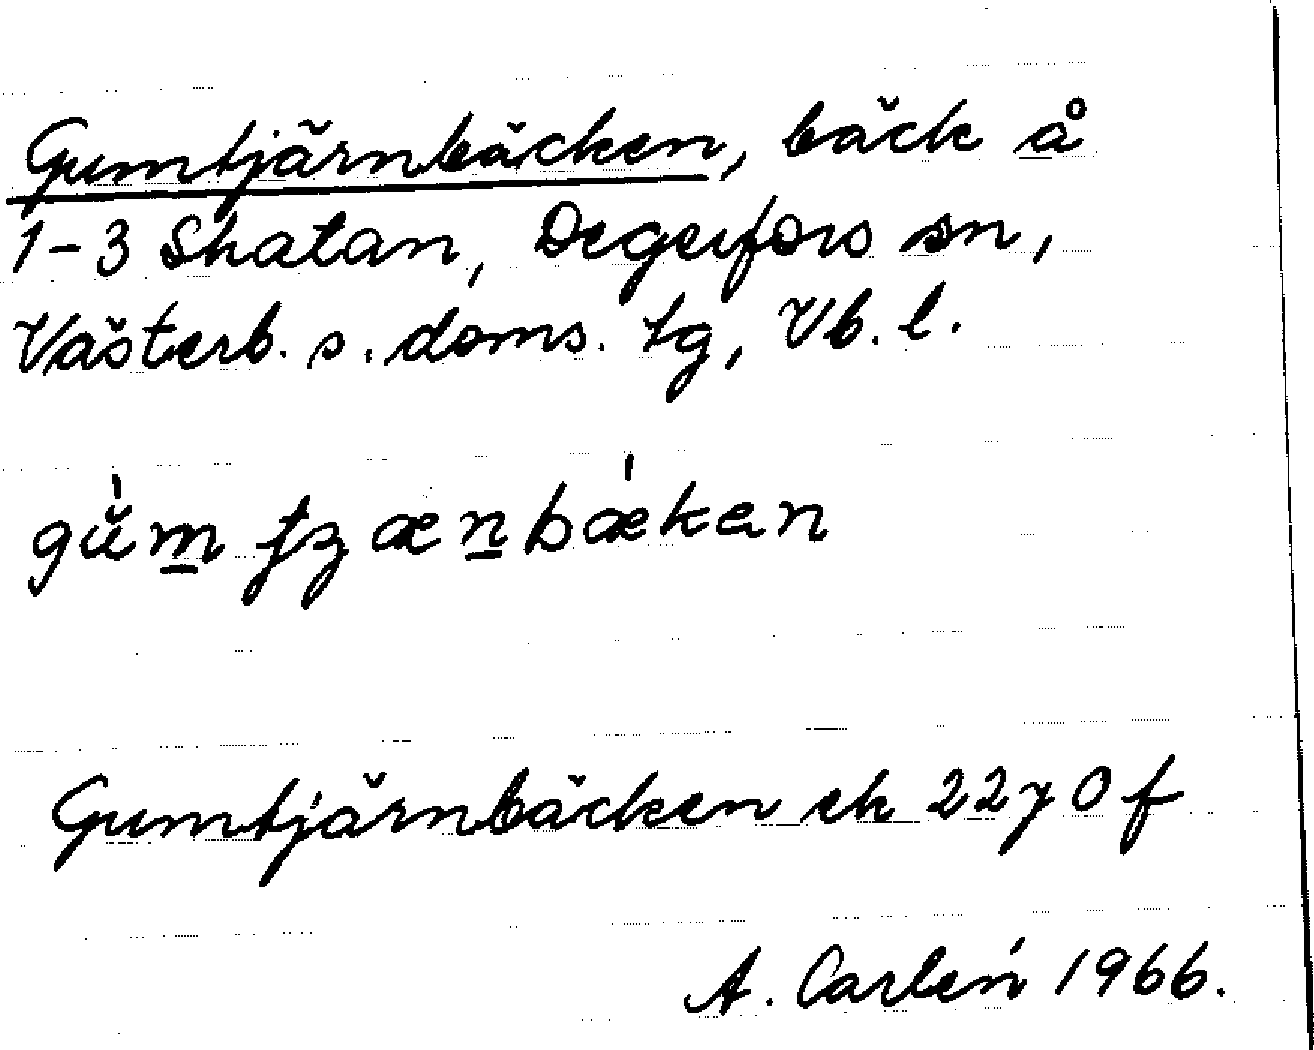 Gumtjärnbäcken, bäck å
1-3 Skatan, Degerfors sn,
Västerb. s. doms. tg, Vb. l.
Gumtjärnbäcken ek 22y0f
A. Carlén 1966.